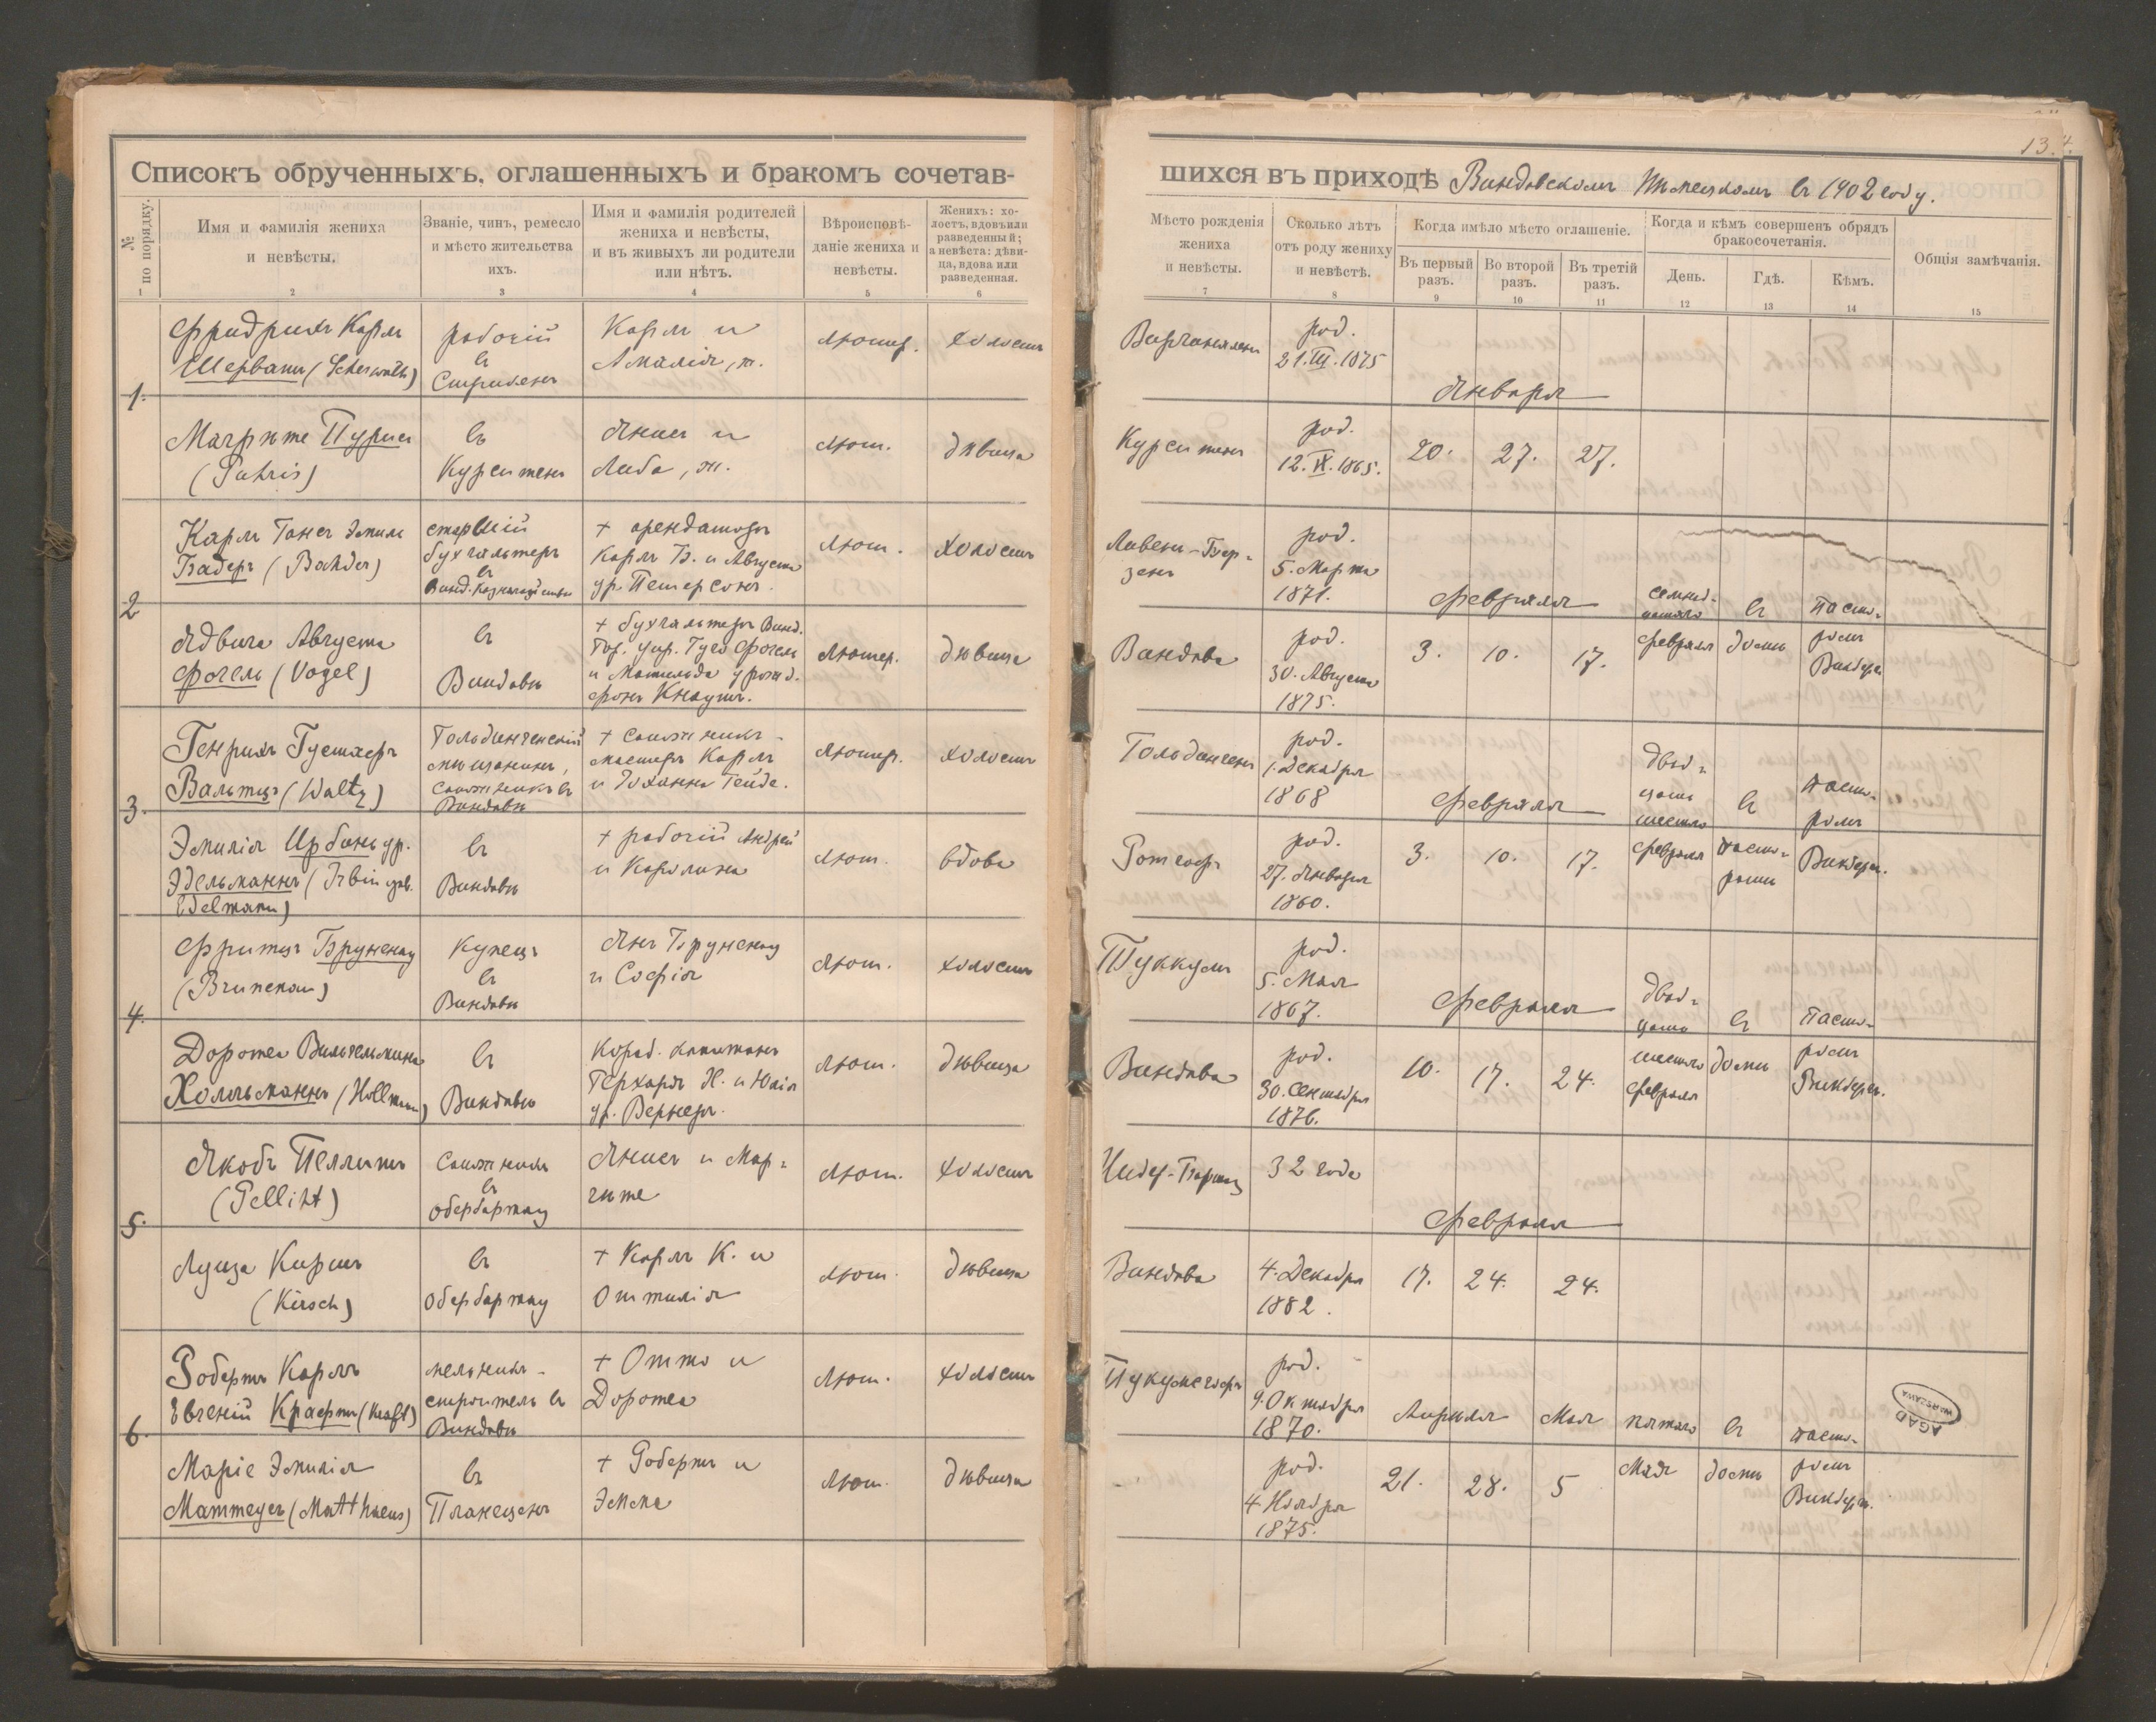 13.
Списокъ обрученныхъ, оглашенныхъ и бракомъ сочетав-
шихся въ приходѣ Виндавскомъ Нѣмецкомъ въ 1902 году.
№ по порядку.
Имя и фамилія жениха
и невѣсты.
Званіе, чинъ, ремесло
и мѣсто жительства
ихъ.
Имя и фамилія родителей
жениха и невѣсты,
и въ живыхъ ли родители
или нѣтъ.
Вѣроисповѣ-
даніе жениха и
невѣсты.
Женихъ: хо-
лостъ, вдовъ или
разведенный;
а невѣста: дѣви-
ца, вдова или
разведенная.
Мѣсто рожденія
жениха
и невѣсты.
Сколько лѣтъ
отъ роду жениху
и невѣстѣ.
Когда имѣло мѣсто оглашеніе.
Въ первый
разъ.
Во второй
разъ.
Въ третій
разъ.
Когда и кѣмъ совершенъ обрядъ
бракосочетанія.
День.
Гдѣ.
Кѣмъ.
Общія замѣчанія.
1 2 3 4 5 6 7 8 9 10 11 12 13 14 15
1.
Фридрихъ Карлъ
Шерватъ
рабочій
въ
Карлъ и
Амалія, ж.
лютер.
холостъ
род.
21.III.1875
Января
Маргрѣте Пурисъ
(Puhris)
въ
Курситенъ
Янисъ и
Либа, ж.
лют.
дѣвица
Курситенъ
род.
12.IX.1865.
20.
27.
27.
2
Карлъ Гансъ Эмиль
Бадеръ (Bahder)
старшій
бухгалтеръ
въ
Винд. Казначействѣ
+ арендаторъ
Карлъ Б. и Августа
ур. Петерсонъ.
лют.
холостъ
Ливенъ-Бер-
зенъ
род.
5. Марта
1871.
Февраля
семнад-
цатаго
февраля
въ
домѣ
пасто-
ромъ
Ядвига Августа
Фогель (Vogel)
въ
Виндавѣ
+ бухгалтеръ Винд.
Гор. Упр. Гуго Фогель
и Матильда урожд.
фонъ Кнаутъ.
лютер.
дѣвица
Виндава
род.
30. Августа
1875.
3.
10.
17.
3.
Генрихъ Густавъ
Вальтцъ (Waltz)
Гольдингенскій
мѣщанинъ,
сапожникъ въ
Виндавѣ
+ сапожникъ-
мастеръ Карлъ
и Іоханна Гейде.
лютер.
холостъ
Гольдингенъ
род.
1. Декабря
1868
Февраля
двад-
цать
шестаго
февраля
въ
пасто-
ратѣ
пасто-
ромъ
Эмилія Ирбинъ ур.
Эдельманнъ (Irbin geb.
Edelmann)
въ
Виндавѣ
+ рабочій Андрей
и Каролина
лют.
вдова
род.
27. Января
1860.
3.
10.
17.
4.
Фрицъ Бруненау
(Brunenau)
Купецъ
въ
Виндавѣ
Янъ Бруненау
и Софія
лют.
холостъ
Туккумъ
род.
5. Мая
1867.
Февраля
двад-
цать
шестаго
февраля
въ
домѣ
пасто-
ромъ
Доротеа Вильгельмина
Холльманнъ (Hollmann)
въ
Виндавѣ
Кораб. капитанъ
Герхардъ Х. и Юлія
ур. Вернеръ.
лют.
дѣвица
Виндава
род.
30. Сентября
1876.
10.
17.
24.
5.
Якобъ Пеллитъ
(Pelliht)
Сапожникъ
въ
Обербартау
Янисъ и Мар-
гѣте
лют.
холостъ
Нидер-Бартау
32 года
Февраля
Луиза Киршъ
(Kirsch)
въ
Обербартау
+ Карлъ К. и
Оттилія
лют.
дѣвица
Виндава
4. Декабря
1882.
17.
24.
24.
6.
Робертъ Карлъ
Евгеній Крафтъ (Kraft)
мельникъ-
строитель въ
Виндавѣ
+ Отто и
Доротеа
лют.
холостъ
род.
9. Октября
1870.
Апрѣля
Мая
пятаго
Мая
въ
домѣ
пасто-
ромъ
Маріе Эмилія
Маттеусъ (Matthaeus)
въ
Планеценъ
+ Робертъ и
Эмма
лют.
дѣвица
род.
4. Ноября
1875.
21.
28.
5
AGAD
WARSZAWA